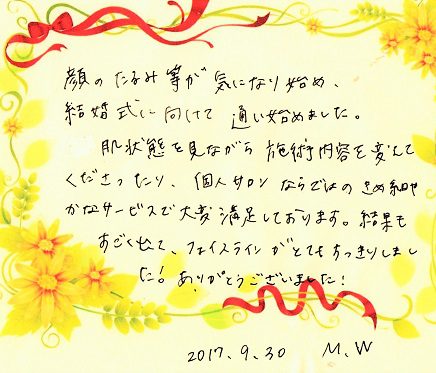 顔のたるみ等が気になり始め、
結婚式に向けて通い始めました。
肌状態を見ながら施術内容を変えて
くださったり、個人サロンならではのきめ細や
かなサービスで大変満足しております。結果も
すごく出て、フェイスラインがとてもすっきりしまし
た!ありがとうございました!
2017.9.30 M.W